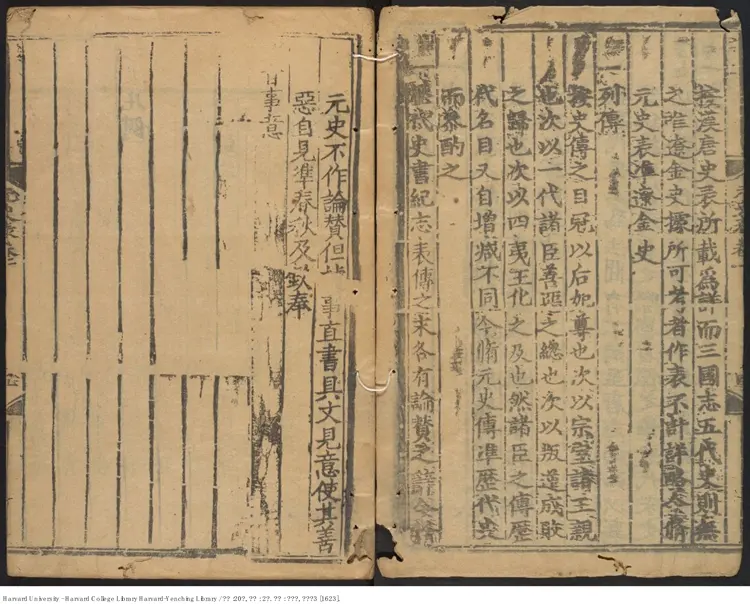 按漢唐史表所載爲詳而三國志五代史則無
之准遼金史據所可考者作表不計詳略今脩
元史表准遼金史
一列傳
按史傳之目冠以后妃尊也次以宗室諸王親
也次以一代諸臣善惡之總也次以叛逆成敗
之歸也次以四夷王化之及也然諸臣之傳歷
代名目又自增減不同今脩元史傳准歷代史
而叅酌之
歷代史書紀志表傳之末各有論贊之辭今脩
元史不作論贊但 事直書具文見意使其善
惡自見準春秋及 欽奉
旨事意
Harvard University - Harvard College Library Harvard-Yenching Library / ?? :20?, ?? : 2?. ?? : ???, ???3 [1623].